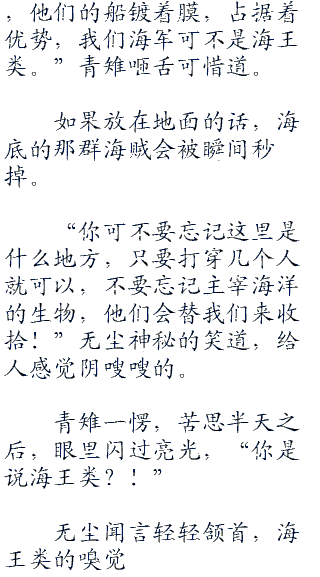 ，他们的船镀着膜，占据着
优势，我们海军可不是海王
类。”青雉咂舌可惜道。
如果放在地面的话，海
底的那群海贼会被瞬间秒
掉。
“你可不要忘记这里是
什么地方，只要打穿几个人
就可以，不要忘记主宰海洋
的生物，他们会替我们来收
拾！”无尘神秘的笑道，给
人感觉阴嗖嗖的。
青雉一愣，苦思半天之
后，眼里闪过亮光，“你是
说海王类？！”
无尘闻言轻轻颔首，海
王类的嗅觉